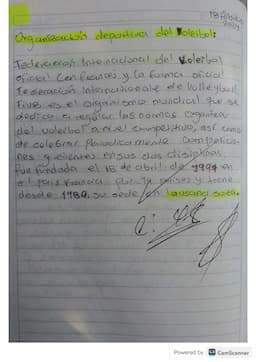 Organización deportiva del Voleibol:
Federación Internacional del Voleibol
oficial con Francés y la forma oficial
Federación Internationale de Volleyball
FIVB es el organismo mundial que se
dedica a regular las normas
del voleibol a nivel competitivo, así como
de celebrar Periodicamente Competicio-
nes y eventos en sus dos disiplinas,
fue fundada el 18 de abril de 1947 en
el país Francia por 14 paises y tiene
desde 1984 su sede en Lausana suiza.
Powered by CS CamScanner